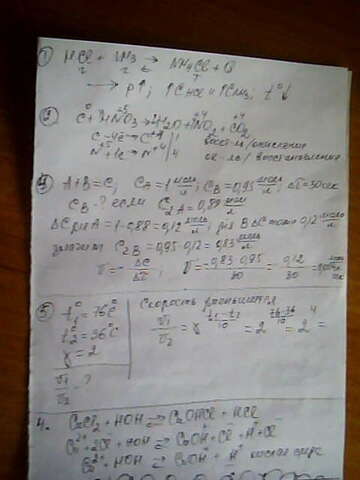 ① HCl + NH3 ⇄ NH4Cl + Q
г г т
⟶ p↑; ↑CHCl и ↑CNH3; t°↓
② C° + HNO3 → H2O + NO2 + CO2
C - 4e → C+4 | 1 восст-ль/окисление
N+5 + 1e → N+4 | 4 ок-ль/восстановление
A + B = C; CA = 1 моль/л; CB = 0,95 моль/л; Δτ = 30 сек
CB - ? если C2A = 0,88 моль/л
ΔC для A = 1 - 0,88 = 0,12 моль/л; для B ΔC тоже 0,12 моль/л
значит C2B = 0,95 - 0,12 = 0,83 моль/л
V = - ΔC/Δτ; V = - 0,83 - 0,95 / 30 = 0,12 / 30 =
⑤ t1° = 76°C
t2° = 36°C
γ = 2
V1/V2 - ?
Скорость уменьшится
V1/V2 = γ t1 - t2/10 = 2 76-36/10 = 2 4 =
4. CaCl2 + HOH ⇄ CaOHCl + HCl
Ca2+ + 2Cl + HOH ⇄ CaOH + Cl + H + Cl
Ca2+ + HOH ⇄ CaOH + H кислая среда